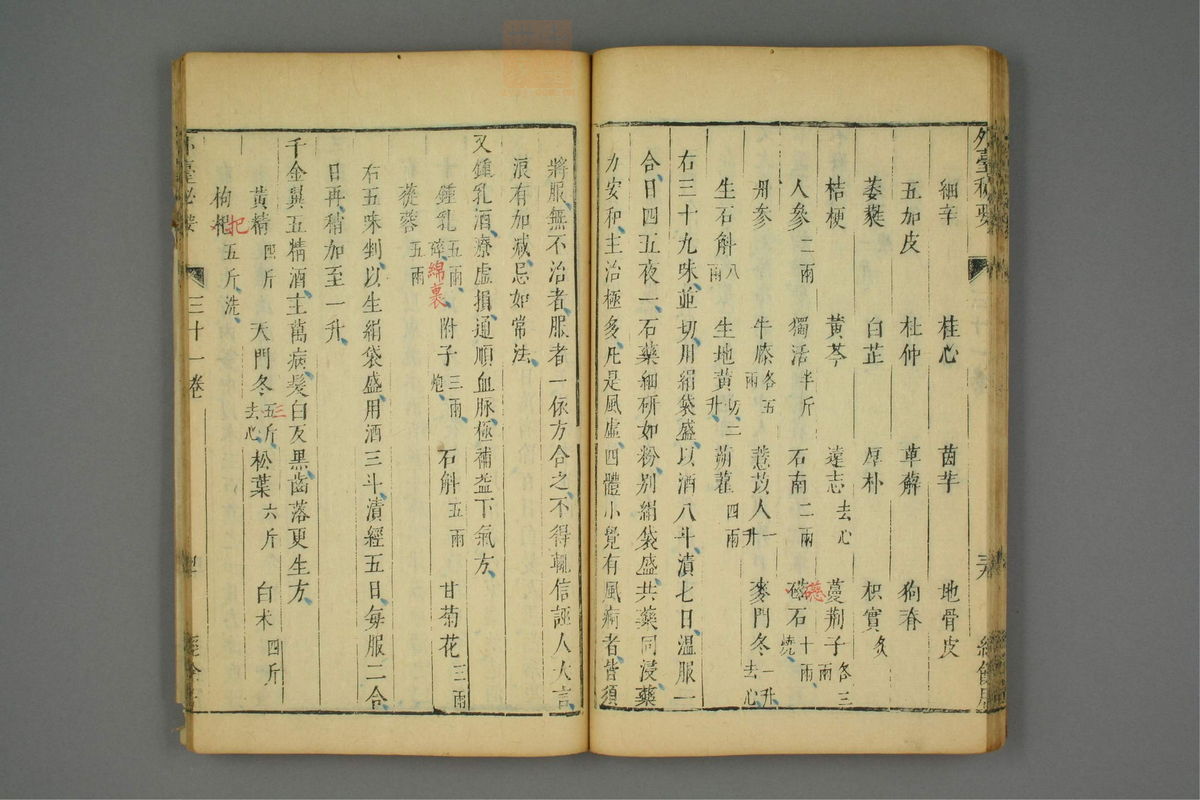 外臺秘要
細辛 桂心 茵芋 地骨皮
五加皮 杜仲 萆薢 狗脊
萎蕤 白芷 厚朴 枳實炙
桔梗 黃芩 遠志去心 蔓荆子各三兩
人參二兩 獨活半斤 石南二兩 礠石十兩燒 磁
丹參 牛膝各五兩 薏苡人一升 麥門冬一升去心
生石斛八兩 生地黃切二升 蒴藋四兩
右三十九味並切用絹袋盛以酒八斗漬七日温服一
合日四五夜一石藥細研如粉别絹袋盛共藥同浸藥
力安和主治極多凡是風虛四體小覺有風痾者皆須
將服無不治者服者一依方合之不得輒信誑人大言
浪有加减忌如常法
又鍾乳酒療虛損通順血脉極補益下氣方
鍾乳五兩碎 綿裹 附子三兩炮 石斛五兩 甘菊花三兩
蓯蓉五兩
右五味剉以生絹袋盛用酒三斗漬經五日每服二合
日再稍加至一升
千金翼五精酒主萬病髮白反黑齒落更生方
黃精四斤 天門冬五斤去心 三 松葉六斤 白术四斤
枸杞五斤洗 杞
外臺秘要 三十一卷